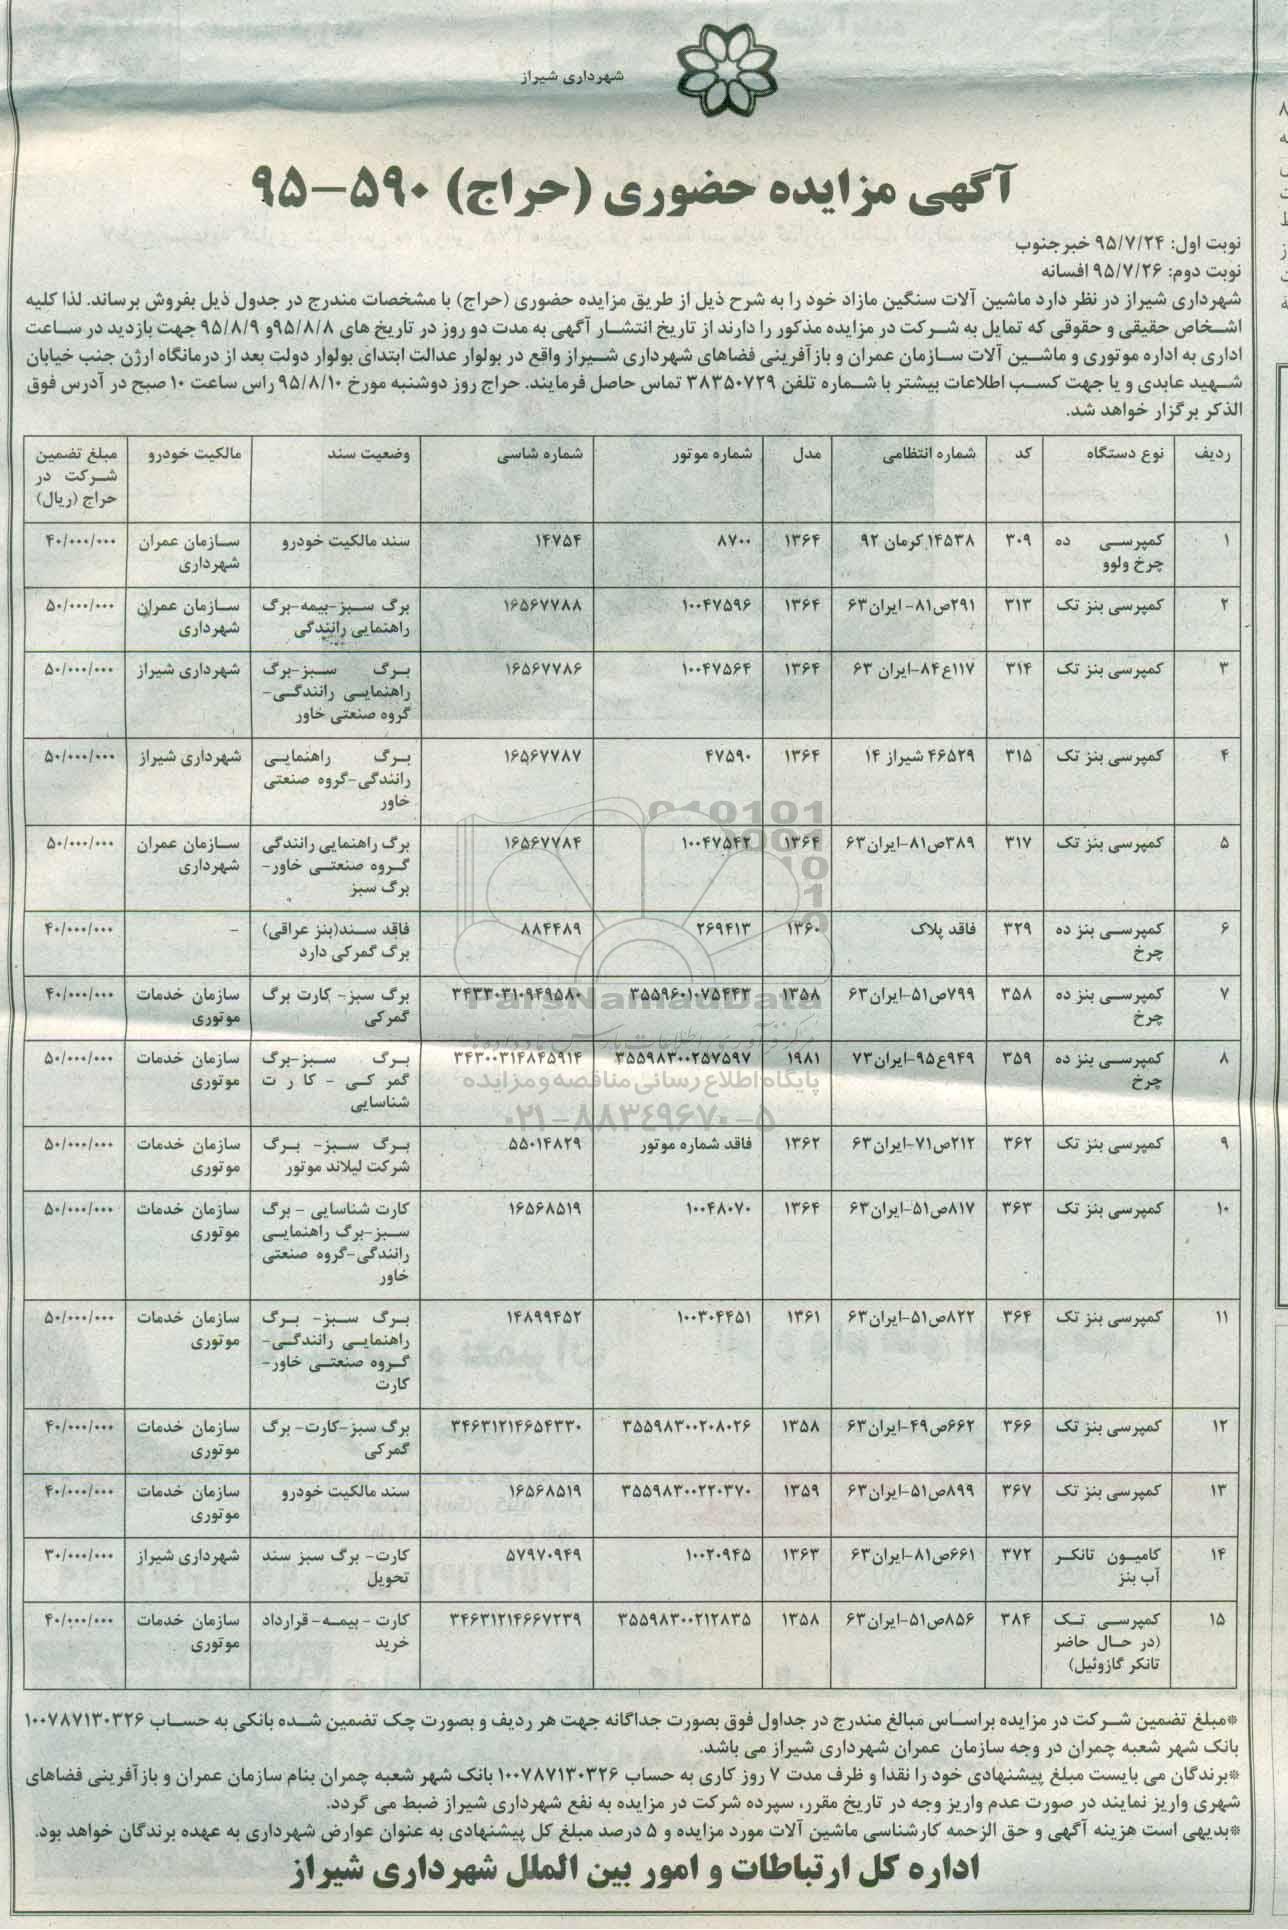 شهرداری شیراز
آگهی مزایده حضوری (حراج) ۵۹۰-۹۵
نوبت اول: ۹۵/۷/۲۴ خبرجنوب
نوبت دوم: ۹۵/۷/۲۶ افسانه
شهرداری شیراز در نظر دارد ماشین آلات سنگین مازاد خود را به شرح ذیل از طریق مزایده حضوری (حراج) با مشخصات مندرج در جدول ذیل بفروش برساند. لذا کلیه
اشخاص حقیقی و حقوقی که تمایل به شرکت در مزایده مذکور را دارند از تاریخ انتشار آگهی به مدت دو روز در تاریخ های ۹۵/۸/۸و ۹۵/۸/۹ جهت بازدید در ساعت
اداری به اداره موتوری و ماشین آلات سازمان عمران و بازآفرینی فضاهای شهرداری شیراز واقع در بولوار عدالت ابتدای بولوار دولت بعد از درمانگاه ارژن جنب خیابان
شهید عابدی و یا جهت کسب اطلاعات بیشتر با شماره تلفن ۳۸۳۵۰۷۲۹ تماس حاصل فرمایند. حراج روز دوشنبه مورخ ۹۵/۸/۱۰ راس ساعت ۱۰ صبح در آدرس فوق
الذکر برگزار خواهد شد.
ردیف نوع دستگاه کد شماره انتظامی مدل شماره موتور شماره شاسی وضعیت سند مالکیت خودرو مبلغ تضمین
شرکت در
حراج (ریال)
۱ کمپرسی ده ۳۰۹ ۱۴۵۳۸ کرمان ۹۲ ۱۳۶۴ ۸۷۰۰ ۱۴۷۵۴ سند مالکیت خودرو سازمان عمران ۴۰/۰۰۰/۰۰۰
چرخ ولوو شهرداری
۲ کمپرسی بنز تک ۳۱۳ ۲۹۱ص۸۱- ایران۶۳ ۱۳۶۴ ۱۰۰۴۷۵۹۶ ۱۶۵۶۷۷۸۸ برگ سبز-بیمه-برگ سازمان عمران ۵۰/۰۰۰/۰۰۰
راهنمایی رانندگی شهرداری
۳ کمپرسی بنز تک ۳۱۴ ۱۱۷ع۸۴-ایران ۶۳ ۱۳۶۴ ۱۰۰۴۷۵۶۴ ۱۶۵۶۷۷۸۶ برگ سبز-برگ شهرداری شیراز ۵۰/۰۰۰/۰۰۰
راهنمایی رانندگی-
گروه صنعتی خاور
۴ کمپرسی بنز تک ۳۱۵ ۴۶۵۲۹ شیراز ۱۴ ۱۳۶۴ ۴۷۵۹۰ ۱۶۵۶۷۷۸۷ برگ راهنمایی شهرداری شیراز ۵۰/۰۰۰/۰۰۰
رانندگی-گروه صنعتی
خاور
۵ کمپرسی بنز تک ۳۱۷ ۳۸۹ص۸۱-ایران۶۳ ۱۳۶۴ ۱۰۰۴۷۵۴۲ ۱۶۵۶۷۷۸۴ برگ راهنمایی رانندگی سازمان عمران ۵۰/۰۰۰/۰۰۰
گروه صنعتی خاور- شهرداری
برگ سبز
۶ کمپرسی بنز ده ۳۲۹ فاقد پلاک ۱۳۶۰ ۲۶۹۴۱۳ ۸۸۴۴۸۹ فاقد سند(بنز عراقی) - ۴۰/۰۰۰/۰۰۰
چرخ برگ گمرکی دارد
۷ کمپرسی بنز ده ۳۵۸ ۷۹۹ص۵۱-ایران۶۳ ۱۳۵۸ ۳۵۵۹۶۰۱۰۷۵۴۴۳ ۳۴۳۳۰۳۱۰۹۴۹۵۸۰ برگ سبز- کارت برگ سازمان خدمات ۴۰/۰۰۰/۰۰۰
چرخ گمرکی موتوری
۸ کمپرسی بنز ده ۳۵۹ ۹۴۹ع۹۵-ایران۷۳ ۱۹۸۱ ۳۵۵۹۸۳۰۰۲۵۷۵۹۷ ۳۴۳۰۰۳۱۴۸۴۵۹۱۴ برگ سبز-برگ سازمان خدمات ۵۰/۰۰۰/۰۰۰
چرخ گمر کی - کار ت موتوری
شناسایی
۹ کمپرسی بنز تک ۳۶۲ ۲۱۲ص۷۱-ایران۶۳ ۱۳۶۲ فاقد شماره موتور ۵۵۰۱۴۸۲۹ برگ سبز- برگ سازمان خدمات ۵۰/۰۰۰/۰۰۰
شرکت لیلاند موتور موتوری
۱۰ کمپرسی بنز تک ۳۶۳ ۸۱۷ص۵۱-ایران۶۳ ۱۳۶۴ ۱۰۰۴۸۰۷۰ ۱۶۵۶۸۵۱۹ کارت شناسایی - برگ سازمان خدمات ۵۰/۰۰۰/۰۰۰
سبز-برگ راهنمایی موتوری
رانندگی-گروه صنعتی
خاور
۱۱ کمپرسی بنز تک ۳۶۴ ۸۲۲ص۵۱-ایران۶۳ ۱۳۶۱ ۱۰۰۳۰۴۴۵۱ ۱۴۸۹۹۴۵۲ برگ سبز- برگ سازمان خدمات ۵۰/۰۰۰/۰۰۰
راهنمایی رانندگی- موتوری
گروه صنعتی خاور-
کارت
۱۲ کمپرسی بنز تک ۳۶۶ ۶۶۲ص۴۹-ایران۶۳ ۱۳۵۸ ۳۵۵۹۸۳۰۰۲۰۸۰۲۶ ۳۴۶۳۱۲۱۴۶۵۴۳۳۰ برگ سبز-کارت- برگ سازمان خدمات ۴۰/۰۰۰/۰۰۰
گمرکی موتوری
۱۳ کمپرسی بنز تک ۳۶۷ ۸۹۹ص۵۱-ایران۶۳ ۱۳۵۹ ۳۵۵۹۸۳۰۰۲۲۰۳۷۰ ۱۶۵۶۸۵۱۹ سند مالکیت خودرو سازمان خدمات ۴۰/۰۰۰/۰۰۰
موتوری
۱۴ کامیون تانکر ۳۷۲ ۶۶۱ص۸۱-ایران۶۳ ۱۳۶۳ ۱۰۰۲۰۹۴۵ ۵۷۹۷۰۹۴۹ کارت- برگ سبز سند شهرداری شیراز ۳۰/۰۰۰/۰۰۰
آب بنز تحویل
۱۵ کمپرسی تک ۳۸۴ ۸۵۶ص۵۱-ایران۶۳ ۱۳۵۸ ۳۵۵۹۸۳۰۰۲۱۲۸۳۵ ۳۴۶۳۱۲۱۴۶۶۷۲۳۹ کارت - بیمه- قرارداد سازمان خدمات ۴۰/۰۰۰/۰۰۰
(در حال حاضر خرید موتوری
تانکر گازوئیل)
010101
ParsNamadData
پایگاه اطلاع رسانی مناقصه و مزایده
۰۲۱-۸۸۳۴۹۶۷۰-۵
*مبلغ تضمین شرکت در مزایده براساس مبالغ مندرج در جداول فوق بصورت جداگانه جهت هر ردیف و بصورت چک تضمین شده بانکی به حساب ۱۰۰۷۸۷۱۳۰۳۲۶
بانک شهر شعبه چمران در وجه سازمان عمران شهرداری شیراز می باشد.
*برندگان می بایست مبلغ پیشنهادی خود را نقدا و ظرف مدت ۷ روز کاری به حساب ۱۰۰۷۸۷۱۳۰۳۲۶ بانک شهر شعبه چمران بنام سازمان عمران و بازآفرینی فضاهای
شهری واریز نمایند در صورت عدم واریز وجه در تاریخ مقرر، سپرده شرکت در مزایده به نفع شهرداری شیراز ضبط می گردد.
*بدیهی است هزینه آگهی و حق الزحمه کارشناسی ماشین آلات مورد مزایده و ۵ درصد مبلغ کل پیشنهادی به عنوان عوارض شهرداری به عهده برندگان خواهد بود.
اداره کل ارتباطات و امور بین الملل شهرداری شیراز